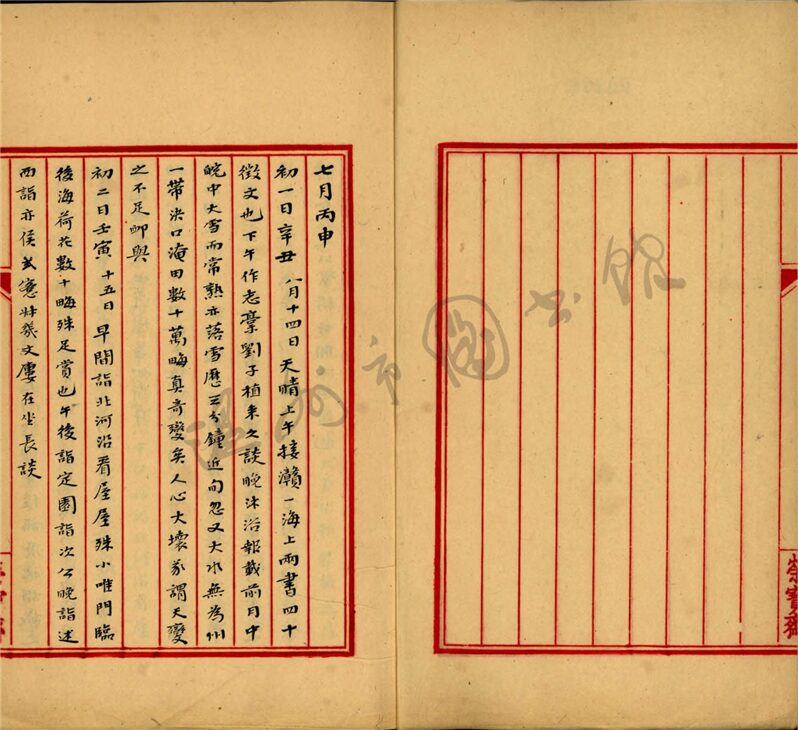 七月丙申
初一日辛丑 八月十四日 天晴上午接瀛一海上兩書四十
徵文也下午作志藁劉子植來久談晚沐浴報載前月中
皖中大雪而常熟亦落雪歷三分鐘近旬忽又大水無為州
一帶決口淹田數十萬畮真奇變矣人心大壞彖謂天變
之不足卹與
初二日壬寅 十五日 早間詣北河沿看屋屋殊小唯門臨
後海荷花數十畮殊足賞也午後詣定園詣次公晚詣述
西詣亦侯文農在坐長談
榮寶齋
溫州市圖書館